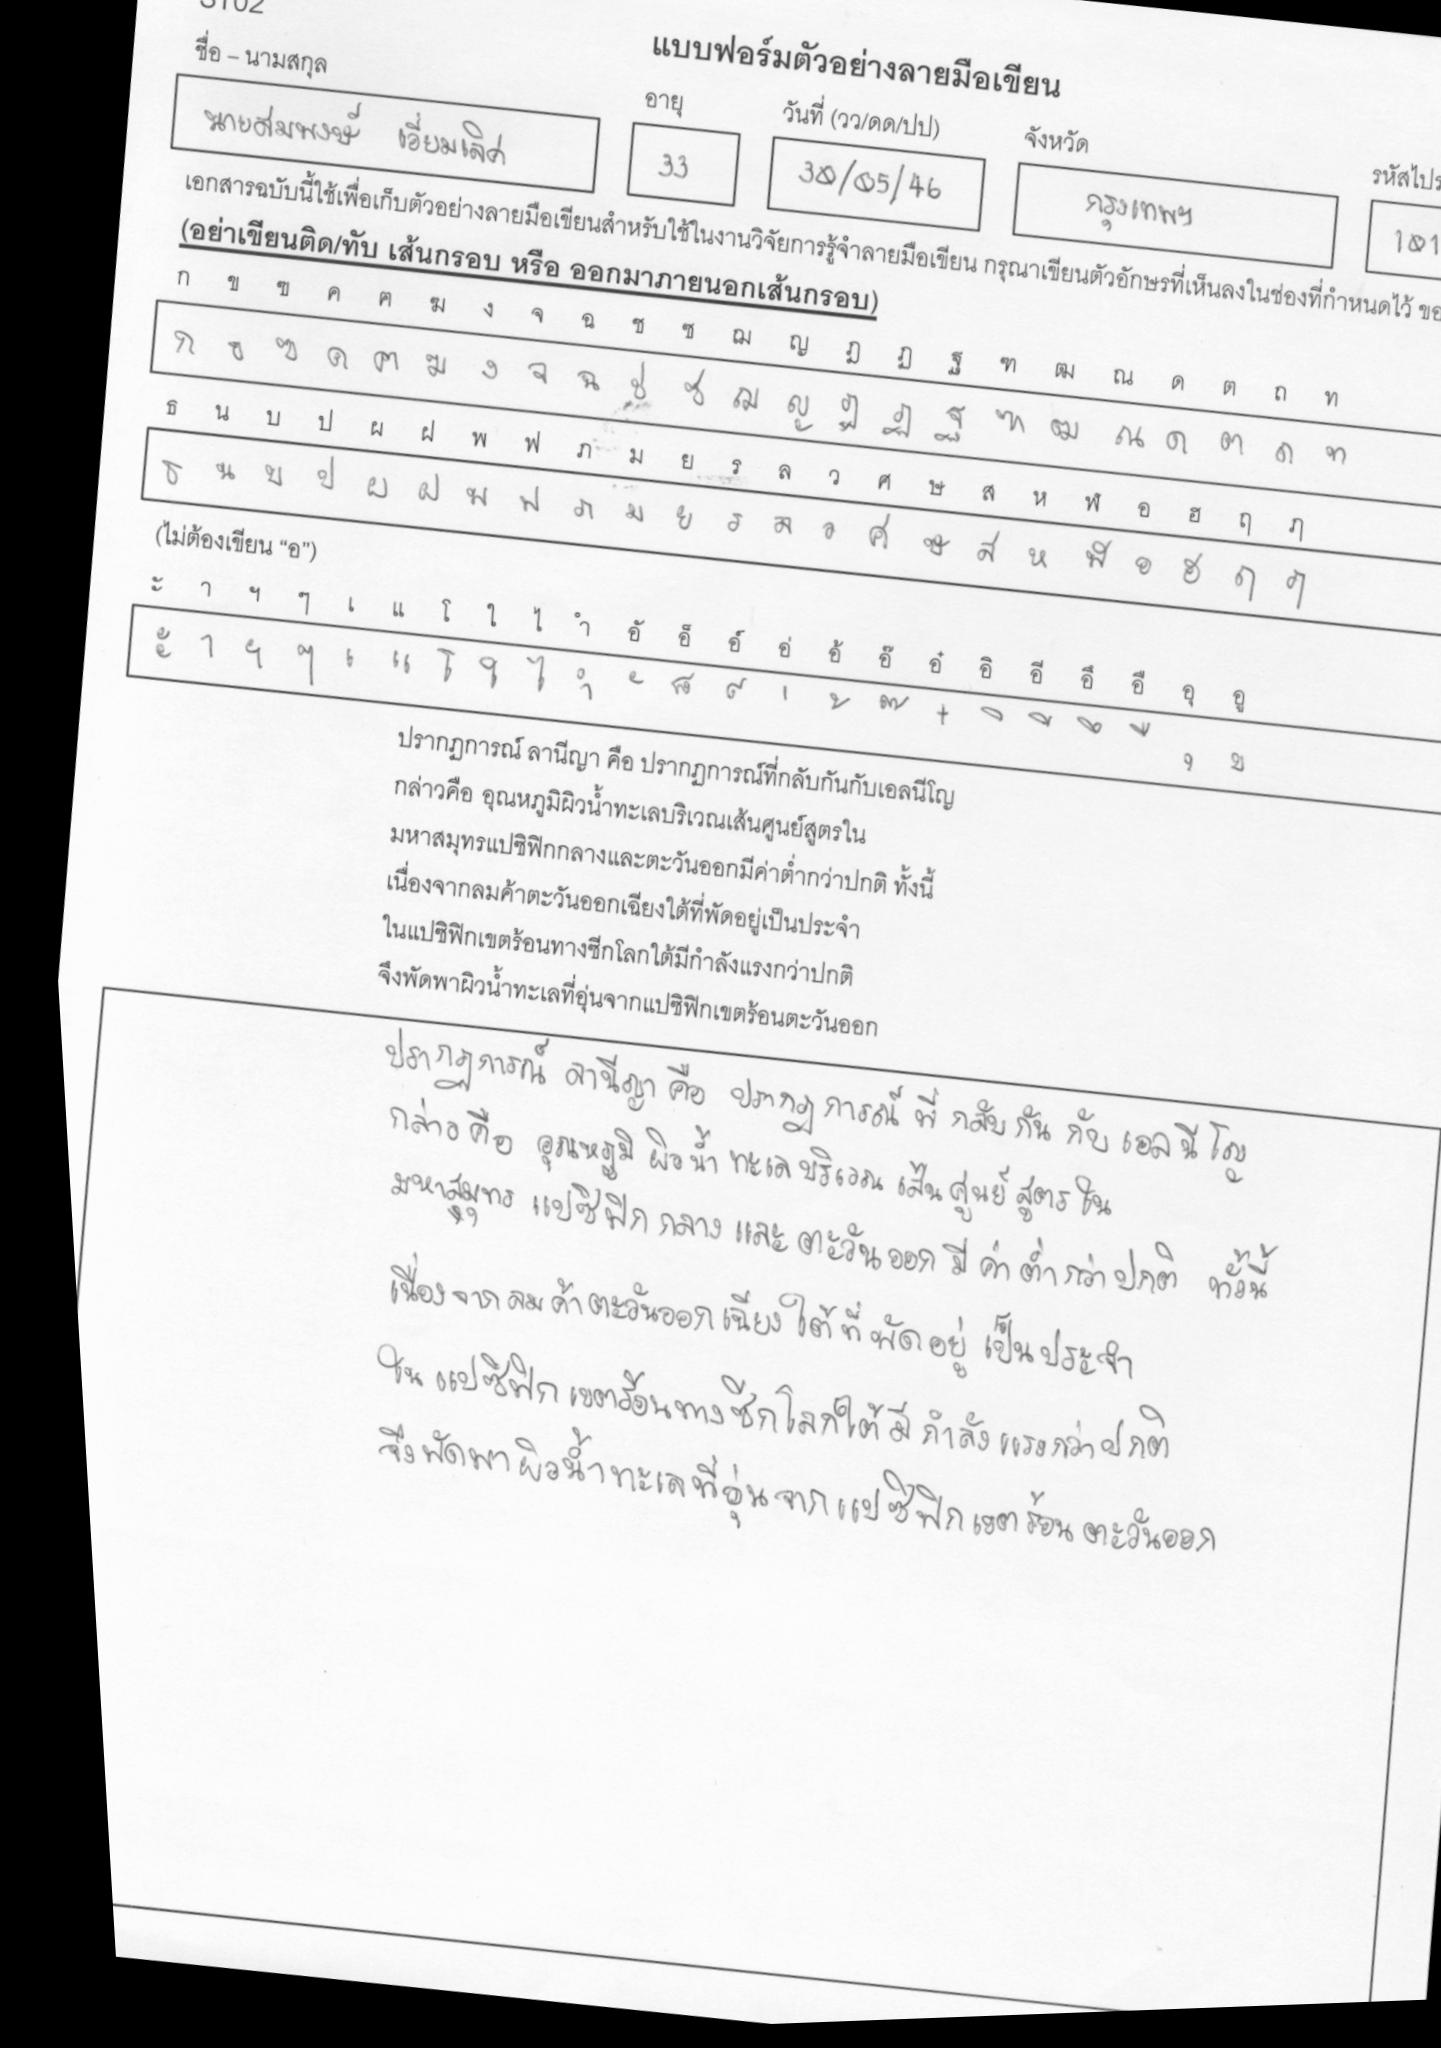 ST02
แบบฟอร์มตัวอย่างลายมือเขียน
ชื่อ – นามสกุล อายุ วันที่ (วว/ดด/ปป) จังหวัด
นายสมพงษ์ เอี่ยมเลิศ 33 30/05/46 กรุงเทพฯ
เอกสารฉบับนี้ใช้เพื่อเก็บตัวอย่างลายมือเขียนสำหรับใช้ในงานวิจัยการรู้จำลายมือเขียน กรุณาเขียนตัวอักษรที่เห็นลงในช่องที่กำหนดไว้
(อย่าเขียนติด/ทับ เส้นกรอบ หรือ ออกมาภายนอกเส้นกรอบ)
ก ข ฃ ค ฅ ฆ ง จ ฉ ช ซ ฌ ญ ฎ ฏ ฐ ฑ ฒ ณ ด ต ถ ท
ก ข ฃ ค ฅ ฆ ง จ ฉ ช ซ ฌ ญ ฎ ฏ ฐ ฑ ฒ ณ ด ต ถ ท
ธ น บ ป ผ ฝ พ ฟ ภ ม ย ร ล ว ศ ษ ส ห ฬ อ ฮ ฤ ฦ
ธ น บ ป ผ ฝ พ ฟ ภ ม ย ร ล ว ศ ษ ส ห ฬ อ ฮ ฤ ฦ
(ไม่ต้องเขียน “อ”)
ะ า ฯ ๆ เ แ โ ใ ไ ำ อั อ็ อ์ อ่ อ้ อ๊ อ๋ อิ อี อึ อื อุ อู
ะ า ฯ ๆ เ แ โ ใ ไ ำ ั ็ ์ ่ ้ ๊ ๋ ิ ี ึ ื ุ ู
ปรากฏการณ์ ลานีญา คือ ปรากฏการณ์ที่กลับกันกับเอลนีโญ
กล่าวคือ อุณหภูมิผิวน้ำทะเลบริเวณเส้นศูนย์สูตรใน
มหาสมุทรแปซิฟิกกลางและตะวันออกมีค่าต่ำกว่าปกติ ทั้งนี้
เนื่องจากลมค้าตะวันออกเฉียงใต้ที่พัดอยู่เป็นประจำ
ในแปซิฟิกเขตร้อนทางซีกโลกใต้มีกำลังแรงกว่าปกติ
จึงพัดพาผิวน้ำทะเลที่อุ่นจากแปซิฟิกเขตร้อนตะวันออก
ปรากฏการณ์ ลานีญา คือ ปรากฏการณ์ ที่ กลับ กัน กับ เอลนีโญ
กล่าวคือ อุณหภูมิ ผิวน้ำ ทะเล บริเวณ เส้น ศูนย์ สูตร ใน
มหาสมุทร แปซิฟิก กลาง และ ตะวันออก มี ค่า ต่ำ กว่า ปกติ ทั้งนี้
เนื่องจาก ลม ค้า ตะวันออก เฉียง ใต้ ที่ พัด อยู่ เป็น ประจำ
ใน แปซิฟิก เขตร้อน ทาง ซีกโลกใต้ มี กำลัง แรง กว่า ปกติ
จึง พัด พา ผิวน้ำ ทะเล ที่ อุ่น จาก แปซิฟิก เขต ร้อน ตะวันออก